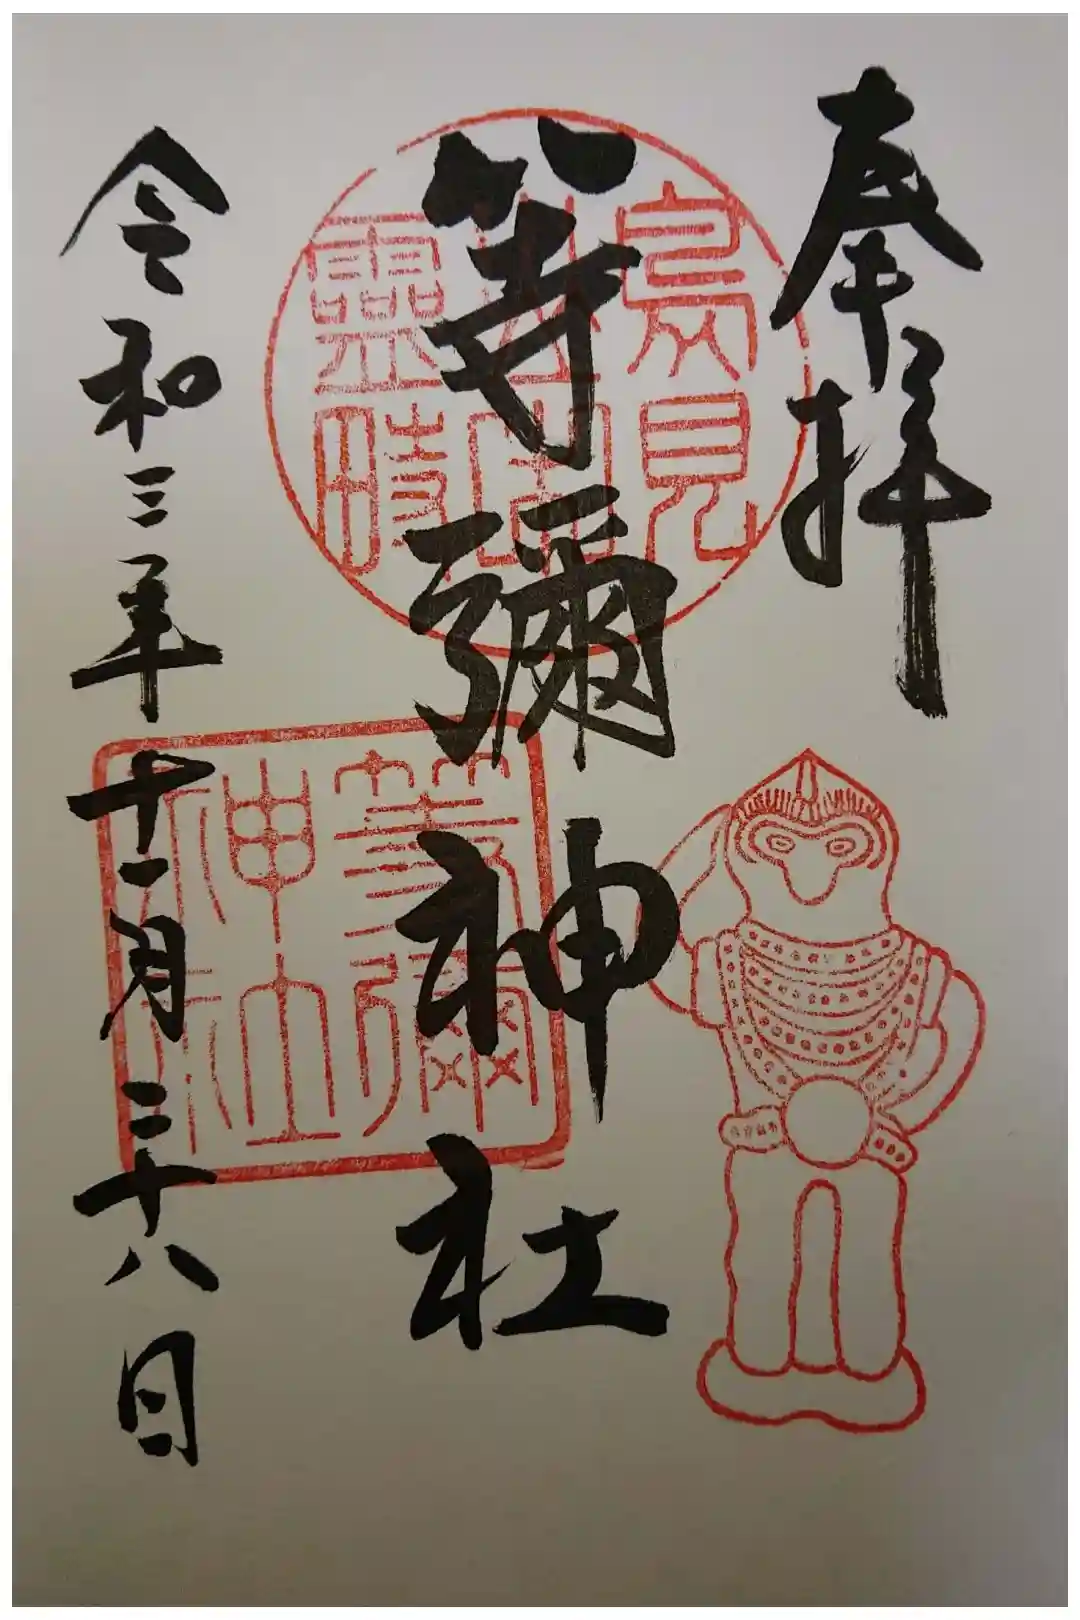 奉拝
鳥見
山中
靈畤
等彌神社
等彌
神社
令和三年十一月二十八日